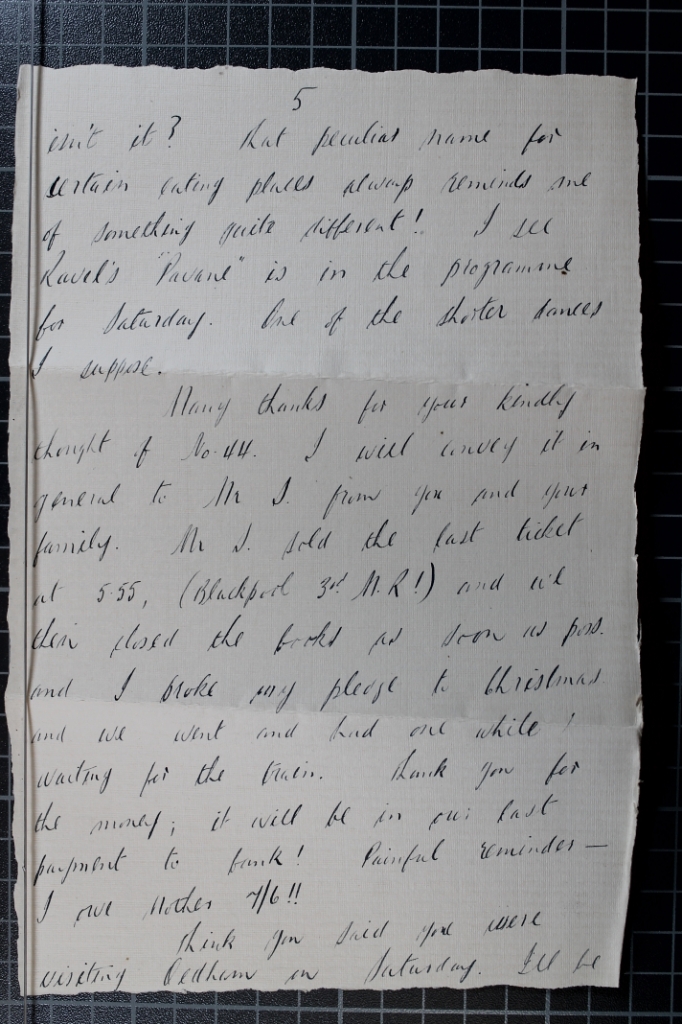 5
isn't it? That peculiar name for
certain eating places always reminds me
of something quite different! I see
Ravel's "Pavane" is in the programme
for Saturday. One of the shorter dances
I suppose.
Many thanks for your kindly
thought of No. 44. I will convey it in
general to Mr S. from you and your
family. Mr S. sold the last ticket
at 5.55, (Blackpool 3rd M.R!) and we
then closed the books as soon as poss.
and I broke my pledge to Christmas
and we went and had one while
waiting for the train. Thank you for
the money; it will be in our last
payment to bank! Painful reminder —
I owe Mother 7/6!!
Think you said you were
visiting Oldham on Saturday. I'll be